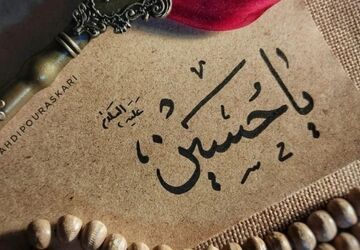 يا حسين
عليه السلام
AHDIPOURASKARI